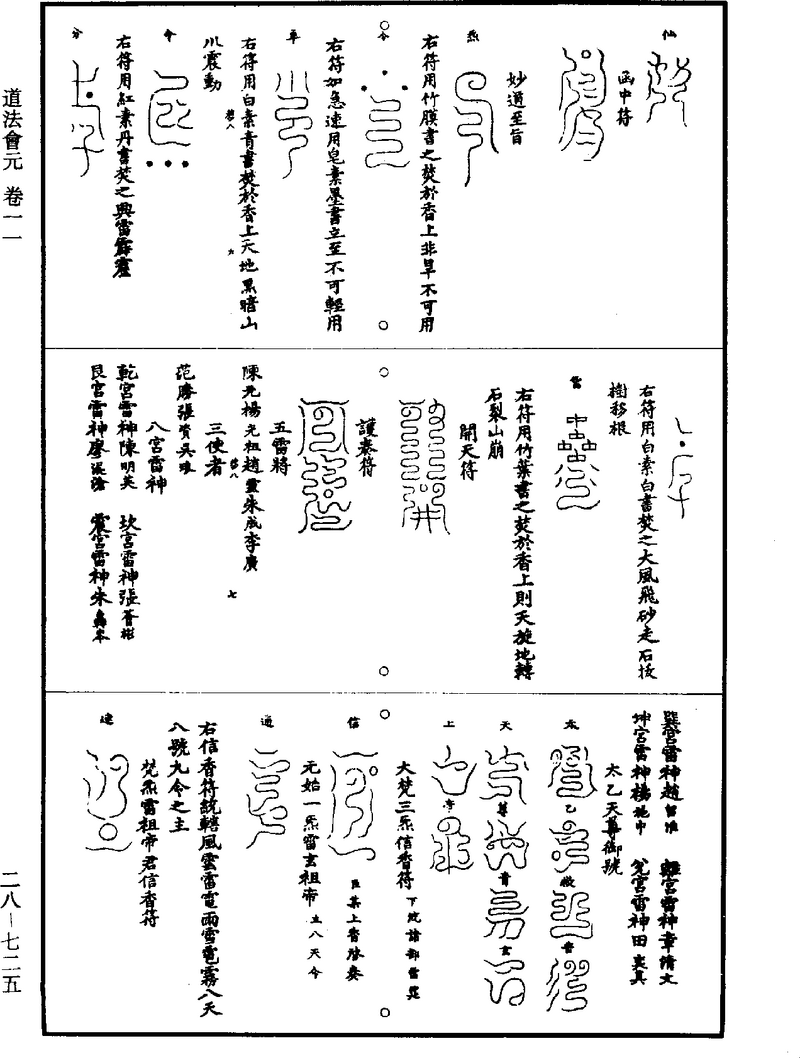 道法會元 卷一一
二八—七二五
仙
函中符
妙道至旨
炁
右符用竹膜書之焚於香上非旱不可用
令
右符如急速用皂素墨書立至不可輕用
右符用白素青書焚於香上天地黑暗山
川震動
令
右符用紅素丹書焚之興雷霹靂
右符用白素白書焚之大風飛砂走石拔
樹移根
雷
右符用竹葉書之焚於香上則天旋地轉
石裂山崩
開天符
護奏符
五雷將
陳元 楊元祖 趙靈 朱成 李廣
三使者
范勝 張資 吳
八宮雷神
乾宮雷神陳明英 坎宮雷神張
艮宮雷神廖 震宮雷神朱
七
巽宮雷神趙 離宮雷神章清文
坤宮雷神楊 兌宮雷神田
太乙天尊御號
太
乙
救
苦
天
尊
青
玄
上
帝
大梵三炁信香符
信
臣某上香啓奏
元始一炁雷玄祖帝 八天令
通
右信香符統轄風雲雷電雨雪雹霧八天
八號九令之主
梵炁雷祖帝君信香符
達